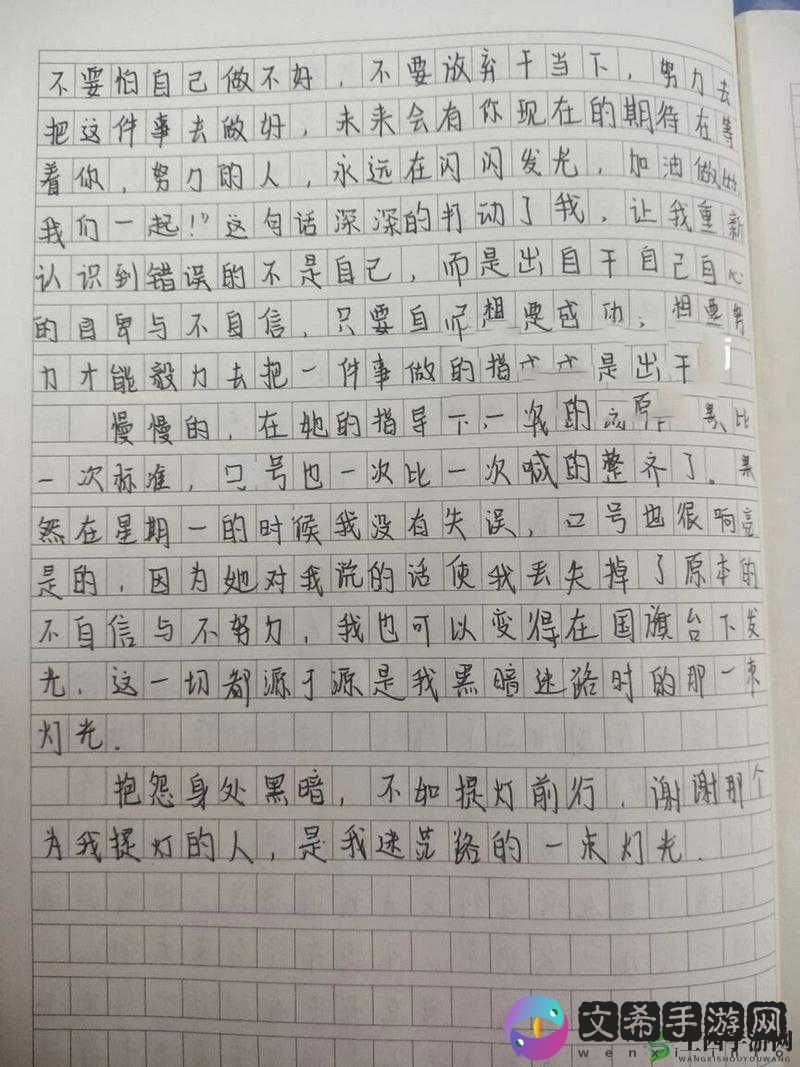 不要怕自己做不好，不要放弃于当下，努力去
把这件事去做好，未来会有你现在的期待在等
着你，努力的人，永远在闪闪发光，加油做
我们一起！”这句话深深的打动了我，让我重新
认识到错误的不是自己，而是出自于自己自心
的自卑与不自信，只要自 想要成功，想要努
力才能毅力去把一件事做的指 是出于
慢慢的，在她的指导下，一次的 比
一次标准，口号也一次比一次喊的整齐了。果
然在星期一的时候我没有失误，口号也很响亮
是的，因为她对我说的话使我丢失掉了原本的
不自信与不努力，我也可以变得在国旗台下发
光，这一切都源于源是我黑暗迷路时的那一束
灯光．
抱怨身处黑暗，不如提灯前行，谢谢那个
为我提灯的人，是我迷茫路的一束灯光．
文希手游网
wenxininc
手游网
WANGXISHOUYOUWANG